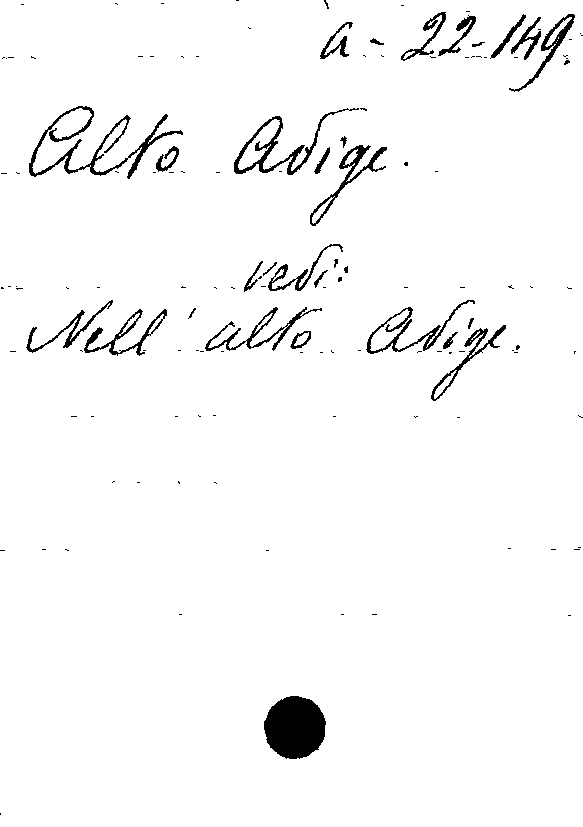 a-22-149.
Alto Adige.
vedi:
Nell'alto Adige.